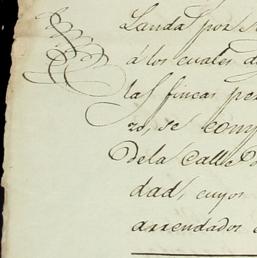 Landa por
á los cuales
las fincas
zo, se
de la Calle
dad, cuyos
arrendados